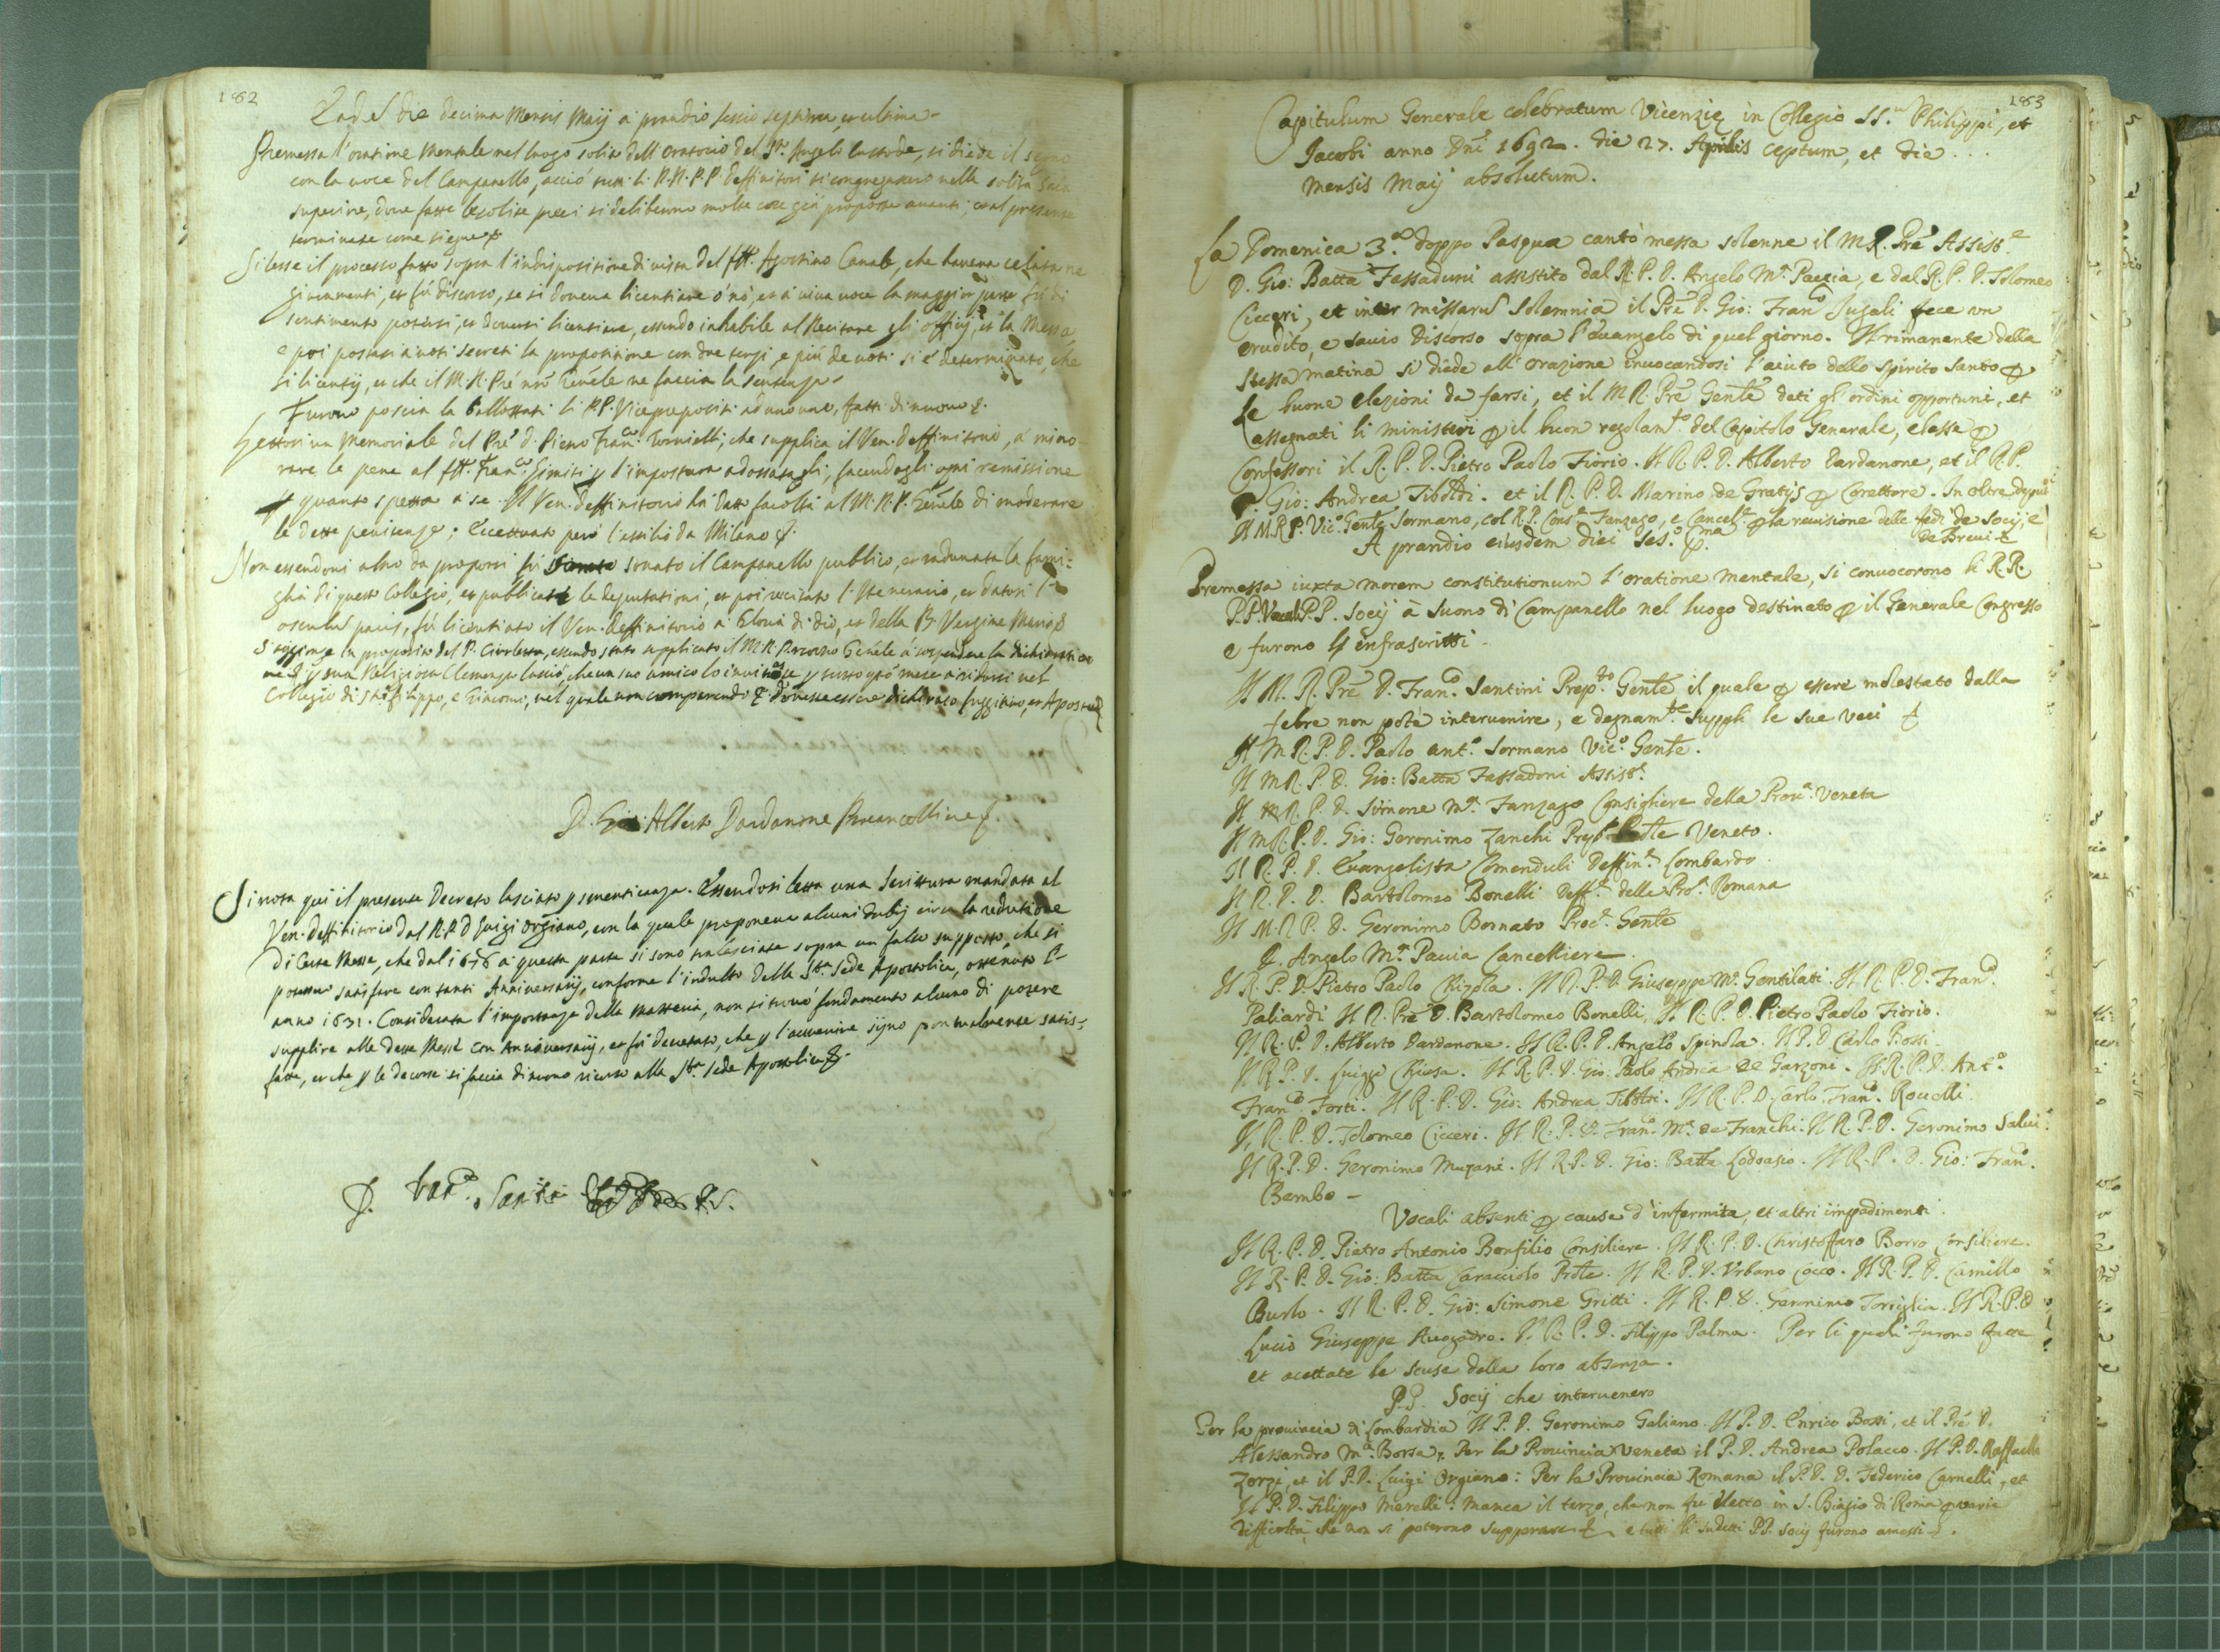 182
Eadem die decima Mensis Maij à prandio sessio septima, et ultima.
Premessa l'oratione Mentale nel luogo solito dell'Oratorio del Sto. Angelo Custode, si diede il segno
con la voce del Campanello, acciò tutti li R.R. P.P. deffinitori si congregassero nella solita Sala
superiore, dove fatte le solite preci si deliberono molte cose già proposte avanti; et al presente
terminate come siegue
Si lesse il processo fatto sopra l'indispositione di vista del fr. Agostino Canale, che haveva
giuramenti, et fù discorso, se si doveva licentiare ò nò, et à viva voce la maggior parte fù di
sentimento potersi, et doversi licentiare, essendo inhabile al Recitare gli officij, et la Messa,
e poi postasi à voti secreti la propositione con due terzi, e più de voti si è determinato, che
si licentij, et che il M. R. Pré nrō Genēle ne faccia la sentenza.
Furono poscia la ballottati li P.P. Vicepreposti ad uno uno, fatti di nuovo &.
Lettosi un Memoriale del Pré d. Pietro Franco. Tornielli; che supplica il Ven. deffinitorio, à mino-
rare le pene al fr. Franco. Simiti p l'impostura adossatagli, facendogli ogni remissione
p quanto spetta à se. Il Ven. deffinitorio hà dato facoltà al M. R. P. Genēle di moderare
le dette penitenze; Eccettuato però l'essilio da Milano &.
Non essendovi altro da proporsi fù sonato il Campanello publico, et radunata la fami-
glia di questo Collegio, et publicate le deputationi, et poi recitato l'Itenerario, et datosi l'
osculum pacis, fù licentiato il Ven. deffinitorio à Gloria di dio, et della B. Vergine Maria &
S'aggionge in proposito del P. essendo stato supplicato il M. R. P. nostro Genēle à sospendere la dichiaratio
ne & p sua Religiosa Clemenza lasciò, che un suo amico lo invitasse p tutto qto mese à ridursi nel
Collegio di Sti Filippo, e Giacomo, nel quale non comparendo & dovesse essere dichirato fuggitivo, et Apostata
D. Gio: Alberto Dardanone Procancelliere &.
Si nota qui il presente Decreto lasciato p smenticanza. Essendosi letta una Scrittura mandata al
Ven. deffinitorio dal R. P. D Luigi Orgiano, con la quale proponeva alcuni dubij circa la redutione
di Certe Messe, che dal 1676 à questa parte si sono tralasciate sopra un falso supposto, che si
potessero satisfare con tanti Anniversarij, conforme l'indulto della Sta. Sede Apostolica, ottenuto l'
anno 1631. Considerata l'importanza della materia, non si trovò fondamento alcuno di potere
supplire alle dette Messe con Anniversarij, et fù decretato, che p l'avvenire sijno pontualmente satis-
fatte, et che p le decorse si faccia di nuovo ricorso alla Sta. Sede Apostolica &.
D. Franco. Santini
183
Capitulum Generale celebratum Vicenziȩ in Collegio SS.m Philippi, et
Jacobi anno Dnī 1692. die 27. Aprilis ceptum, et die . . .
mensis Maij absolutum.
La Domenica 3.a doppo Pasqua cantò messa solenne il M R. Pré Assiste
D. Gio: Batta Fassaduni assistito dal R. P. D. Angelo Ma. Pavia, e dal R. P. D. Tolomeo
Cicceri, et inter missarum solemnia il Pré D. Gio: Franco Jugali fece un
erudito, e savio Discorso sopra l'evangelo di quel giorno. Il rimanente della
stessa matina si diede all'orazione invocandosi l'aiuto dello Spirito Santo p
le buone elezioni da farsi, et il M R. Pré Genle dati gl'ordini opportuni, et
assegnati li ministeri p il buon regolamto. del Capitolo Generale, elesse p
Confessori il R. P. D. Pietro Paolo Fiorio. Il R. P. D. Alberto Dardanone, et il R.P.
D. Gio: Andrea Tiboldi. et il R. P. D. Marino de Gratijs p Corettore. In oltre deputò
Il M R P. Vico. Genle Sormano, col R.P. Conse. Fanzago, e Cancele. p la revisione delle fedi de Socij, e
de Brevi &
A prandio eiusdem diei Ses.o p.ma
Premessa iuxta morem constitutionum l'oratione mentale, si convocorono li R.R.
P.P. Vocali P.P. Socij à suono di Campanello nel luogo destinato p il Generale Congresso
e furono gl'infrascritti.
Il M. R. Pré D. Franco. Santini Prepto Genle il quale p essere molestato dalla
febre non potè intervenire, e degnamte. supplì le sue veci &
Il M R. P. D. Paolo Anto. Sormano Vico. Genle.
Il M R. P. D. Gio: Batta Fassadoni Assiste.
Il M R. P. D. Simone Ma. Fanzago Consigliere della Prova. Veneta
Il M R. P. D. Gio: Geronimo Zanchi Prepto Prole Veneto.
Il R. P. D. Evangelista Comenduli Deffine. Lombardo.
Il R. P. D. Bartolomeo Bonelli Deffe. della Pro.a Romana
Il M. R. P. D. Geronimo Bornato Proce. Genle
D. Angelo Ma. Pavia Cancelliere.
Il R. P. D. Pietro Paolo Chizola. Il R. P. D. Giuseppe Ma. Gentilati. Il R. P. D. Franco.
Paliardi Il R. Pré D. Bartolomeo Bonelli, Il R. P. D. Pietro Paolo Fiorio.
Il R. P. D. Alberto Dardanone. Il R. P. D. Angelo Spinola. Il P. D Carlo Rossi.
Il R. P. D. Luiggi Chiesa. Il R. P. D. Gio: Paolo Andrea de Garzoni. Il R. P. D. Anto.
Franco. Forti. Il R. P. D. Gio: Andrea Tiboldi. Il R. P. D. Carlo Franco. Rovelli.
Il R. P. D. Tolomeo Cicceri. Il R. P. D. Franco. Ma. de Franchi. Il R. P. D. Geronimo Salvi.
Il R. P. D. Geronimo Mugani. Il R. P. D. Gio: Batta Lodoasio. Il R. P. D. Gio: Franco.
Bembo -
Vocali absenti p causa d'infermita, et altri impedimenti.
Il R. P. D. Pietro Antonio Bonfilio Consiliere. Il R. P. D. Christoffero Borro Consiliere.
Il R. P. D. Gio: Batta Caracciolo Prole. Il R. P. D. Urbano Cocco. Il R. P. D. Camillo
Burlo. Il R. P. D. Gio: Simone Gritti. Il R. P. D. Geronimo Torriglia. Il R. P. D
Lucio Giuseppe Avogadro. Il R. P. D. Filippo Palma. Per li quali furono fatte
et acettate le scuse della loro absenza.
P.P. Socij che intervenero
Per la provincia di Lombardia Il P. D. Geronimo Galiano. Il P. D. Enrico Bossi, et il Pré D.
Alessandro Ma. Borsa; Per la Provincia Veneta il P. D. Andrea Polacco. Il P. D. Raffaello
Zorzi, et il P. D. Luigi Orgiano: Per la Provincia Romana il P. D. Federico Carnelli, et
Il P. D. Filippo Merelli: manca il terzo, che non fu eletto in S. Biagio di Roma p varie
difficoltà, che non si poterono superare &, e tutti li sudetti P.P. Socij furono amessi &.